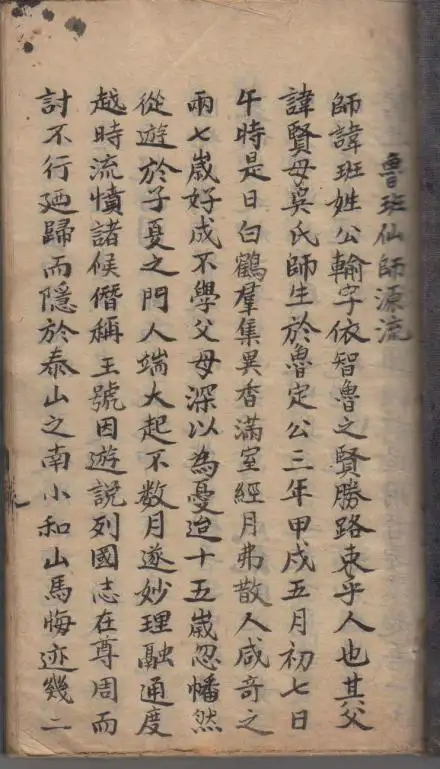 魯班仙師源流
師諱班姓公輸字依智魯之賢勝路東乎人也其父
諱賢母吳氏師生於魯定公三年甲戌五月初七日
午時是日白鶴羣集異香滿室經月弗散人咸奇之
兩七歲好成不學父母深以為憂迨十五歲忽幡然
從遊於子夏之門人端大起不数月遂妙理融通度
越時流憤諸候僭稱王號因遊説列國志在尊周而
討不行廼歸而隱於泰山之南小和山馬晦迹幾二